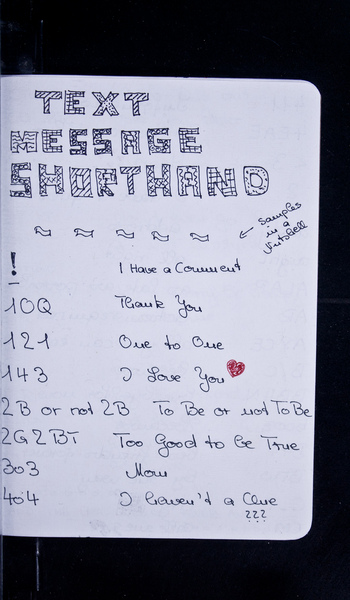 TEXT
MESSAGE
SHORTHAND
Samples
in a
Nutshell
! I Have a Comment
10Q Thank You
121 One to One
143 I Love You
2B or not 2B To Be or not To Be
2G2BT Too Good to be True
303 Mom
404 I haven't a Clue
???